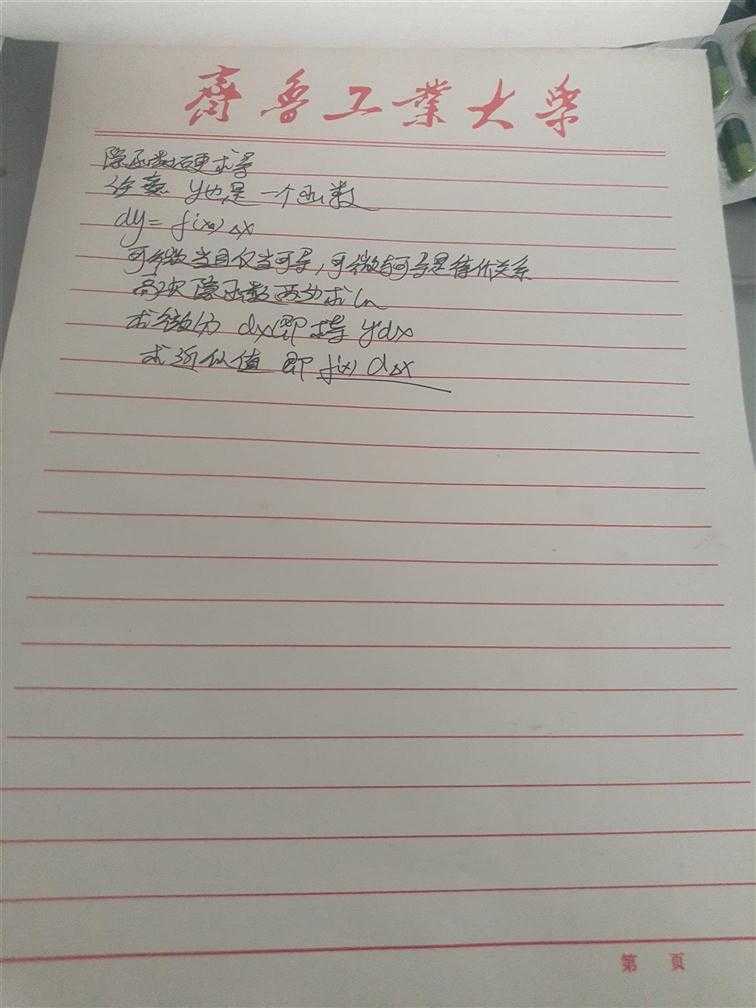 齊魯工業大學
隐函数硬求导
注意 y也是一个函数
dy = f'(x₀)△x
可微当且仅当可导,可微与可导是等价关系
高次隐函数两边求ln
求微分 dx即求导 y'dx
求近似值 即 f'(x) △x
第 頁